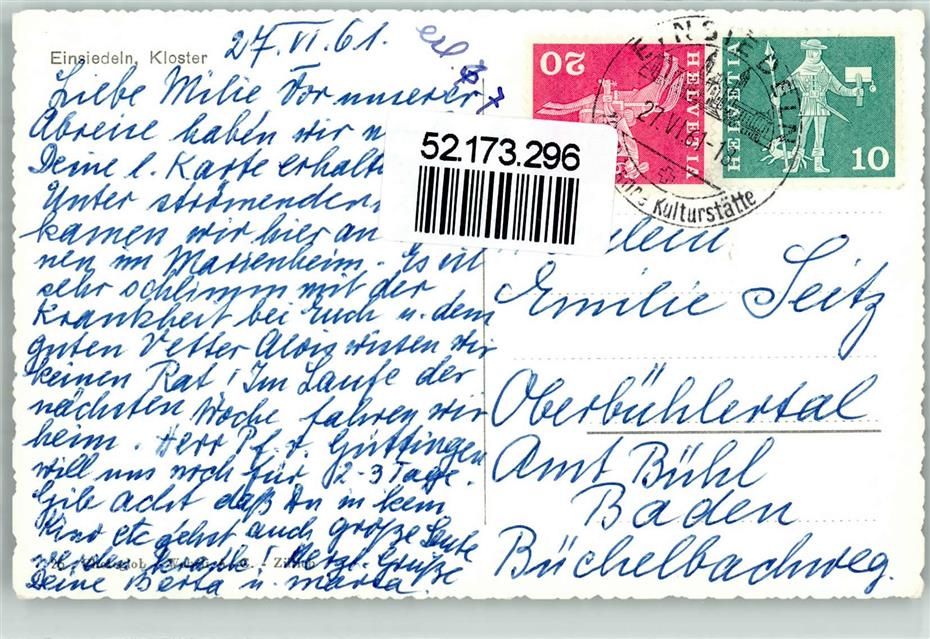 Einsiedeln, Kloster
27.VI.61.
Liebe Milie Vor unserer
Abreise haben wir
Deine l. Karte erhalte
Unter strömendem
kamen wir hier an
nen im Marienheim. Es ist
sehr schlimm mit der
Krankheit bei Euch u. dem
guten Vetter Alois wissen wir
keinen Rat! Im Laufe der
nächsten Woche fahren wir
heim. Herr Pf. v. Güttingen
will uns noch für 2-3 Tage.
Gib acht daß Du in kein
Kino etc gehst auch große Leute
werden Herzl. Grüße
Deine Berta u. Marta.
52.173.296
20
HELVETIA
HELVETIA
10
EINSIEDELN
27.VI.61-1
Kulturstätte
Fräulein
Emilie Seitz
Oberbühlertal
Amt Bühl
Baden
Büchelbachweg.